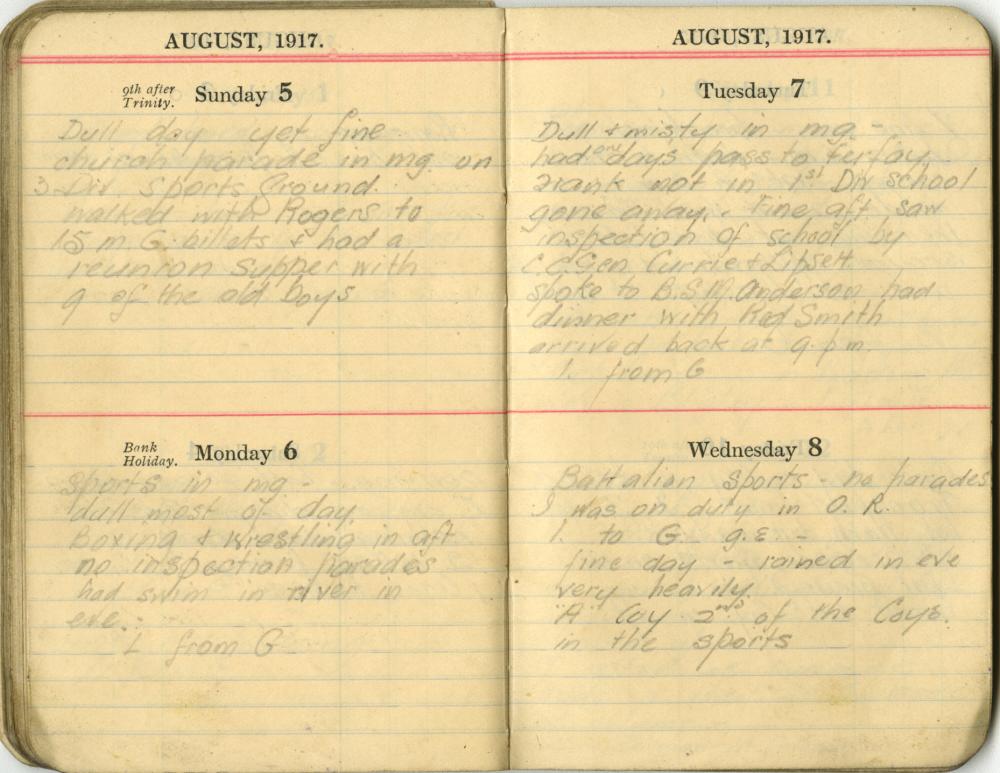 AUGUST, 1917.
9th after
Trinity. Sunday 5
Dull day yet fine
church parade in mg. on
3 Div Sports Ground.
walked with Rogers to
15 m.G. billets & had a
reunion supper with
9 of the old boys
Bank
Holiday. Monday 6
Sports in mg -
dull most of day.
Boxing & wrestling in aft
no inspection parades
had swim in river in
eve. -
L from G
AUGUST, 1917.
Tuesday 7
Dull & misty in mg. -
had one days pass to Ferfay
Frank not in 1st Div school
gone away. Fine aft saw
inspection of school by
Gen Currie & Lipsett
spoke to B.S.M. Anderson had
dinner with Rod Smith
arrived back at 9. p.m.
L from G
Wednesday 8
Battalion sports - no parades
I was on duty in O. R.
L to G. g.E -
fine day - rained in eve
very heavily.
"A" Coy 2nd of the Coys.
in the sports